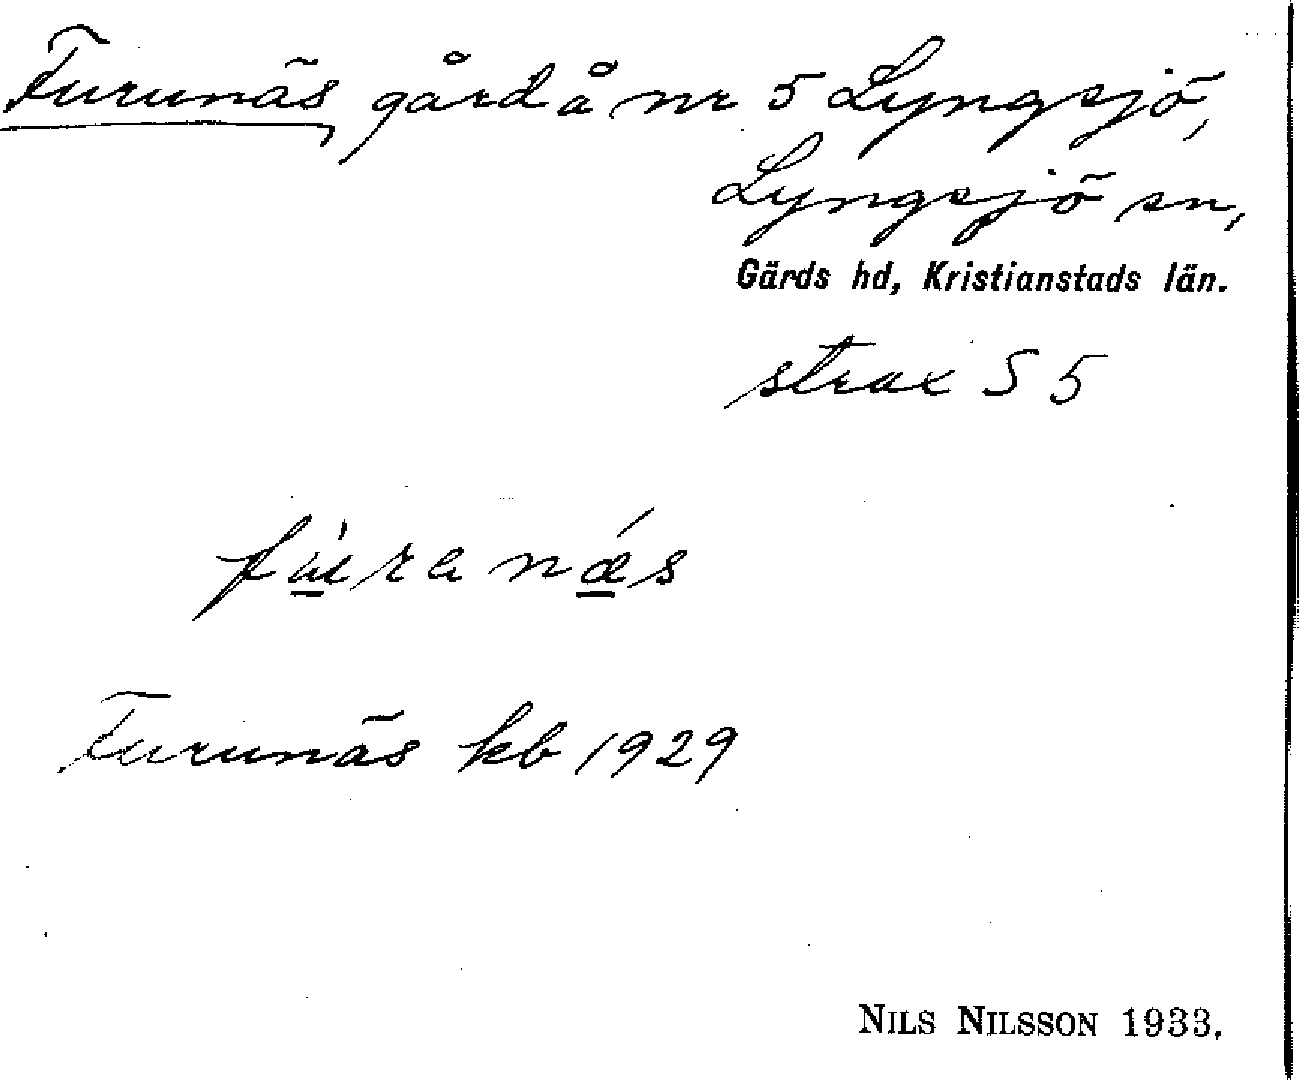 Furunäs, gård å nr 5 Lyngsjö,
Lyngsjö sn,
Gärds hd, Kristianstads län.
strax S 5
fù̲ranǽ̲s
Furunäs kb 1929
NILS NILSSON 1933.